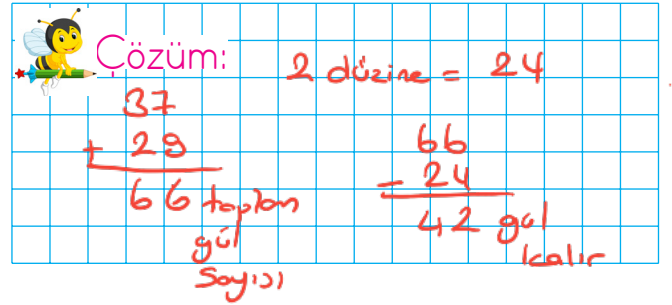 Çözüm:
2 düzine = 24
37
+ 29
66 toplam
gül
sayısı
66
- 24
42 gül
kalır